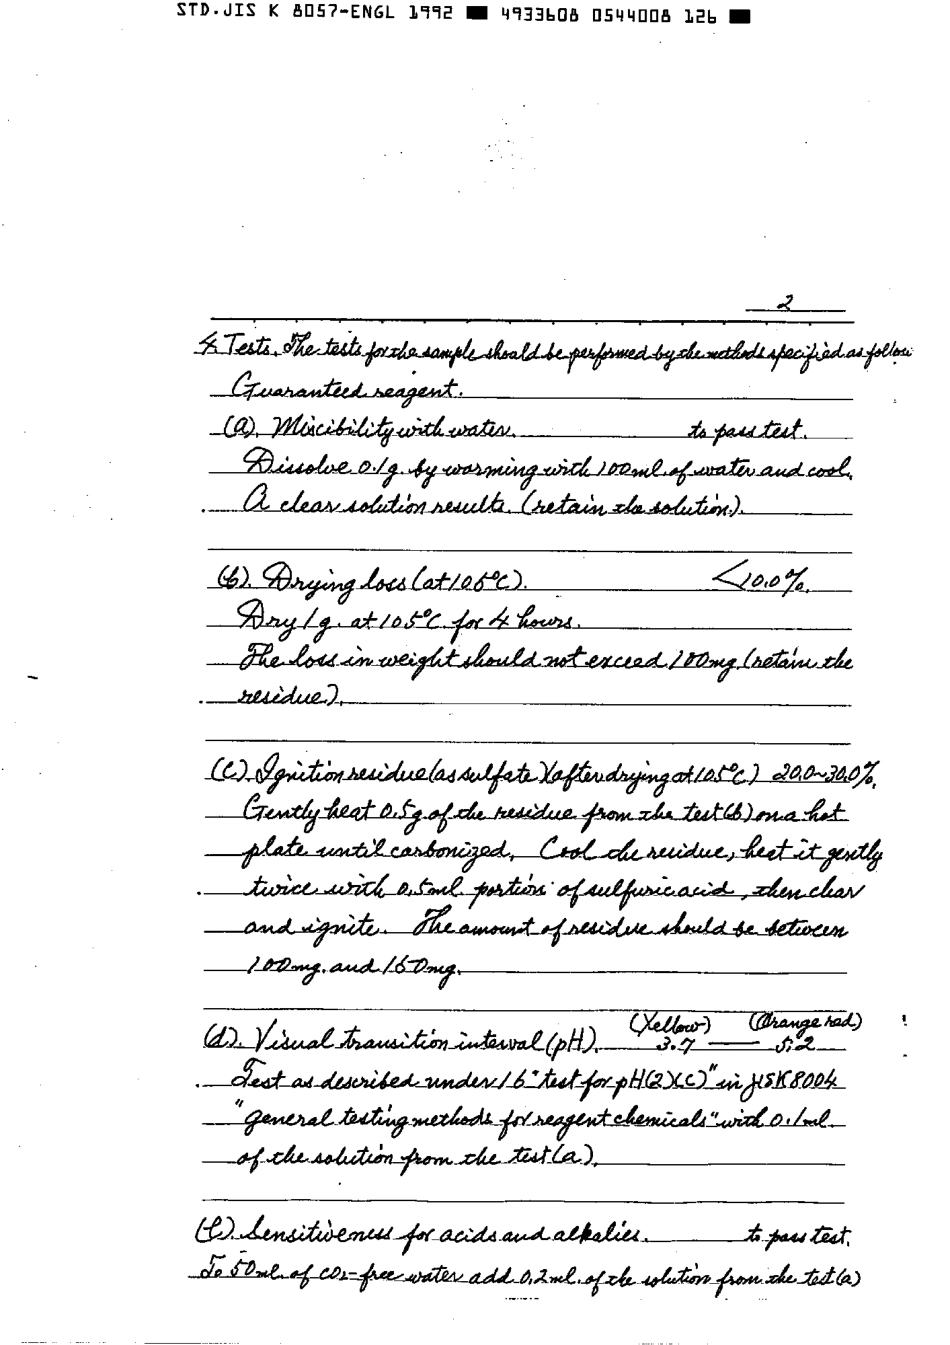 STD.JIS K 8057-ENGL 1992 ■ 4933608 0544008 126 ■
2
4. Tests. The tests for the sample should be performed by the methods specified as follow
Guaranteed reagent.
(a). Miscibility with water. to pass test.
Dissolve 0.1g. by warming with 100ml. of water and cool.
A clear solution results. (retain the solution).
(b). Drying loss (at 105°C). <10.0%.
Dry 1g. at 105°C for 4 hours.
The loss in weight should not exceed 100mg (retain the
residue).
(c). Ignition residue (as sulfate) (after drying at 105°C) 20.0~30.0%.
Gently heat 0.5g of the residue from the test (b) on a hot
plate until carbonized. Cool the residue, heat it gently
twice with 0.5ml portion of sulfuric acid, then char
and ignite. The amount of residue should be between
100mg. and 150mg.
(d). Visual transition interval (pH). (Yellow) 3.7 — (Orange red) 5.2
Test as described under 16 "test for pH(2)(c)" in JISK8004
"general testing methods for reagent chemicals" with 0.1ml
of the solution from the test (a).
(e). Sensitiveness for acids and alkalies. to pass test.
To 50ml. of CO2-free water add 0.2ml. of the solution from the test (a)